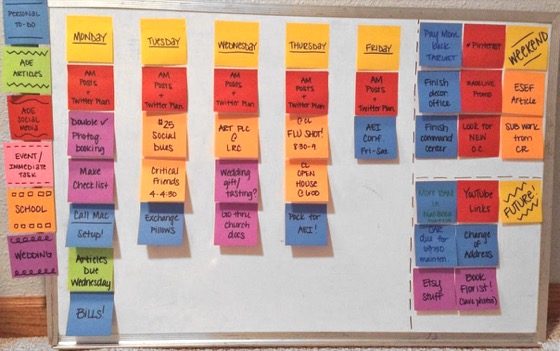 PERSONAL
TO-DO
ADE
ARTICLES
ADE
SOCIAL
MEDIA
EVENT/
IMMEDIATE
TASK
SCHOOL
WEDDING
MONDAY
AM
Posts
+
Twitter Plan
Double ✓
Photog
booking
Make
Checklist
Call Mac
Setup!
Articles
Due
Wednesday
BILLS!
TUESDAY
AM
Posts
+
Twitter Plan
$25
Social
Dues
Critical
Friends
4-4:30
Exchange
Pillows
WEDNESDAY
AM
Posts
+
Twitter Plan
ART PLC
@
LRC
Wedding
gift/
tasting?
Go thru
church
docs
THURSDAY
AM
Posts
+
Twitter Plan
FLU SHOT!
8:30-9
CL
OPEN
HOUSE
@ 6:00
Pack for
AEI!
FRIDAY
AM
Posts
+
Twitter Plan
AEI
Conf.
Fri-Sat
Pay Mom
back
TARGET
* Pinterest
WEEKEND
Finish
decor
office
Promo
ESEF
Article
Finish
command
center
Look for
NEW
O.C.
SUB work
from
CR.
YouTube
Links
FUTURE!
Change
of
Address
Etsy
Stuff
Book
Florist!
(save photos)